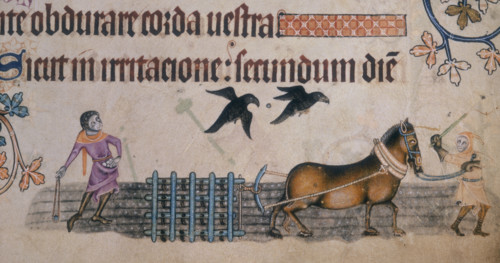 nte obdurare corda uestra.
Sicut in irritacione: secundum diē